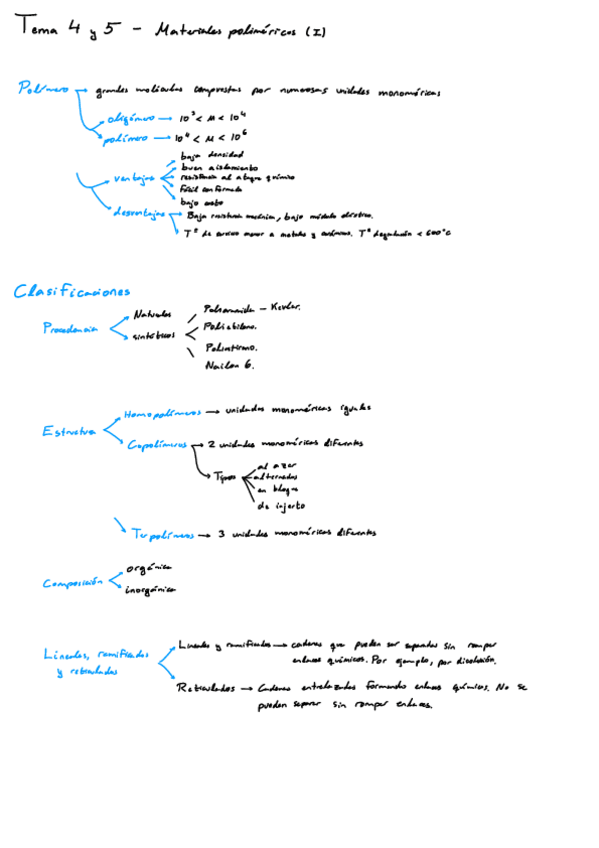 Tema 4 y 5 - Materiales poliméricos (I)
Polímero → grandes moléculas compuestas por numerosas unidades monoméricas
oligómero → 10³ < M < 10⁴
polímero → 10⁴ < M < 10⁶
ventajas
baja densidad
buen aislamiento
resistencia al ataque químico
Fácil conformado
bajo costo
desventajas
Baja resistencia mecánica, bajo módulo elástico.
Tª de servicio menor a metales y cerámicos. Tª degradación < 600°C
Clasificaciones
Procedencia
Naturales
sintéticos
Poliaramida - Kevlar.
Polietileno.
Poliestireno.
Nailon 6.
Estructura
Homopolímeros → unidades monoméricas iguales
Copolímeros → 2 unidades monoméricas diferentes
Tipos
al azar
alternados
en bloque
de injerto
Terpolímeros → 3 unidades monoméricas diferentes
Composición
orgánica
inorgánica
Lineales, ramificados
y reticulados
Lineales y ramificados → cadenas que pueden ser separadas sin romper
enlaces químicos. Por ejemplo, por disolución.
Reticulados → Cadenas entrelazadas formando enlaces químicos. No se
pueden separar sin romper enlaces.